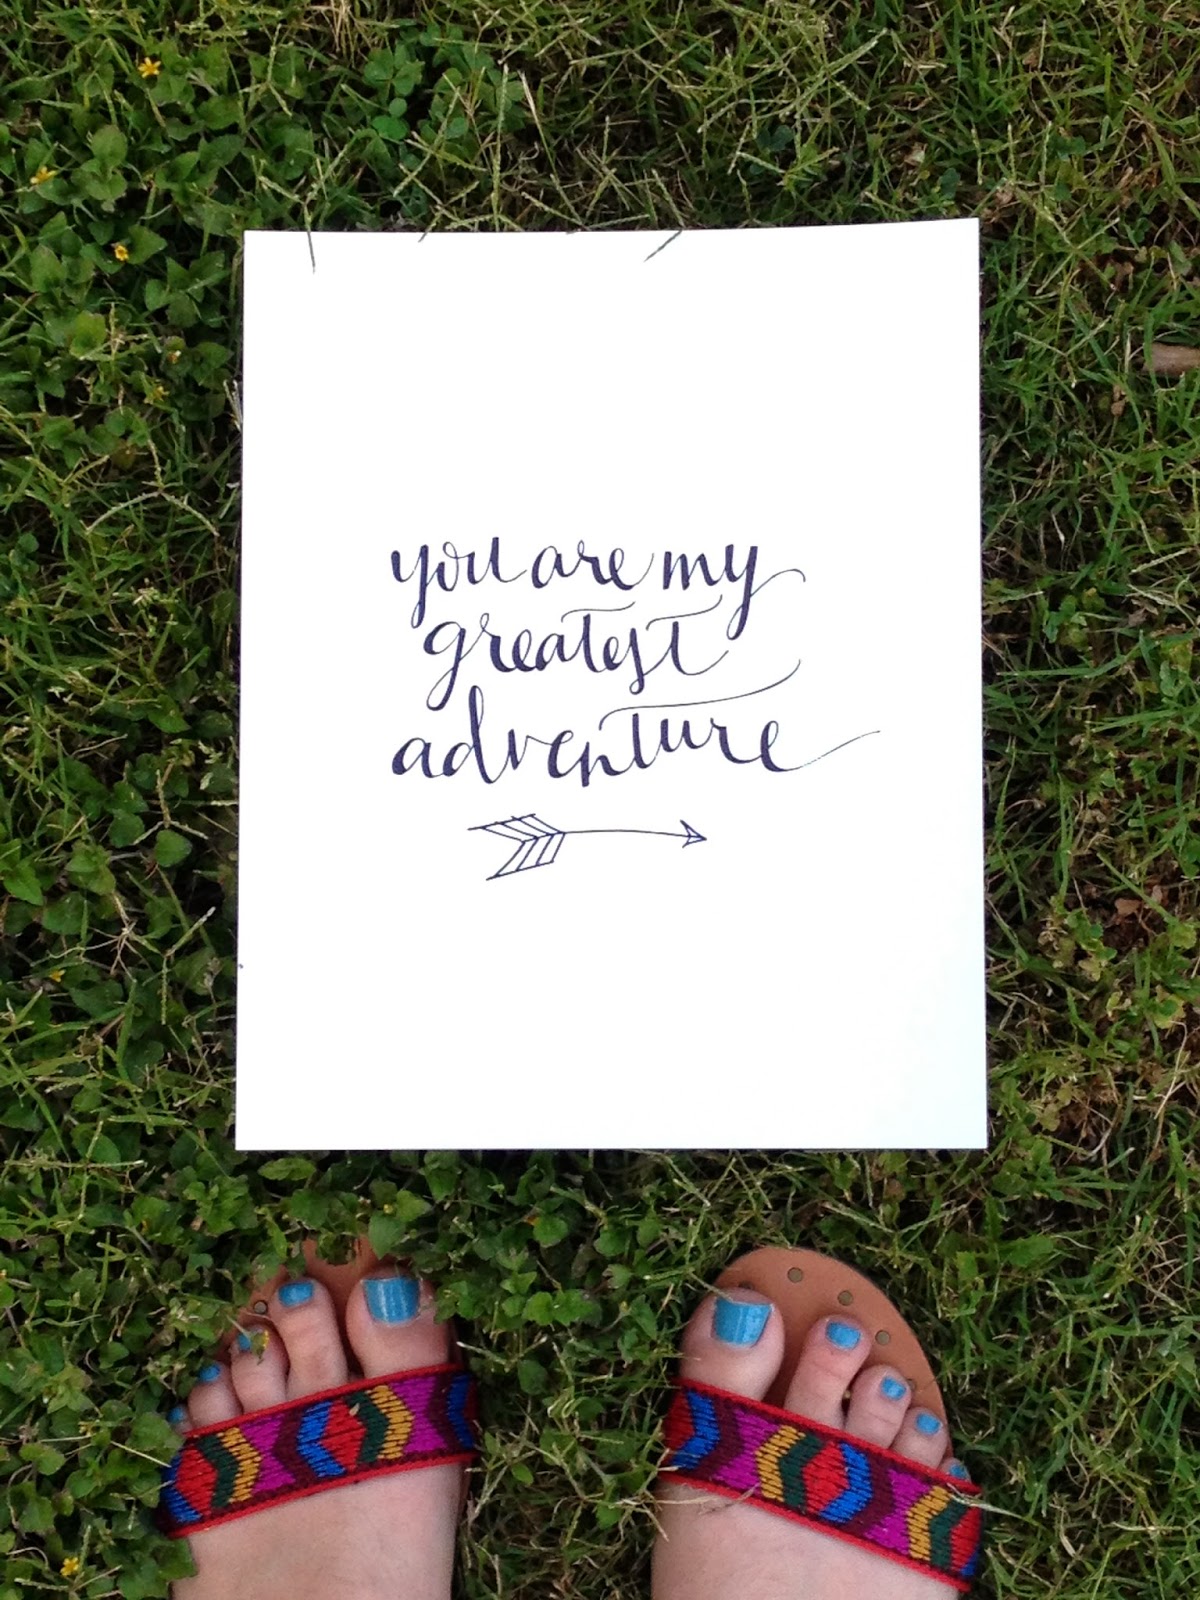 you are my
greatest
adventure